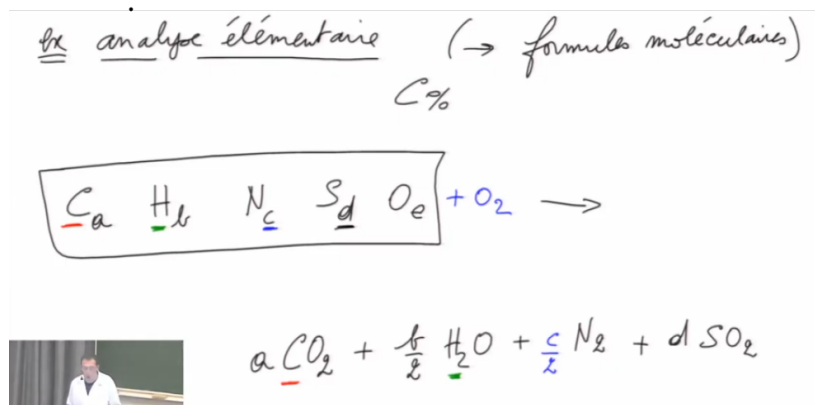 ex analyse élémentaire (→ formules moléculaires)
C%
Ca Hb Nc Sd Oe + O2 →
a CO2 + b/2 H2O + c/2 N2 + d SO2